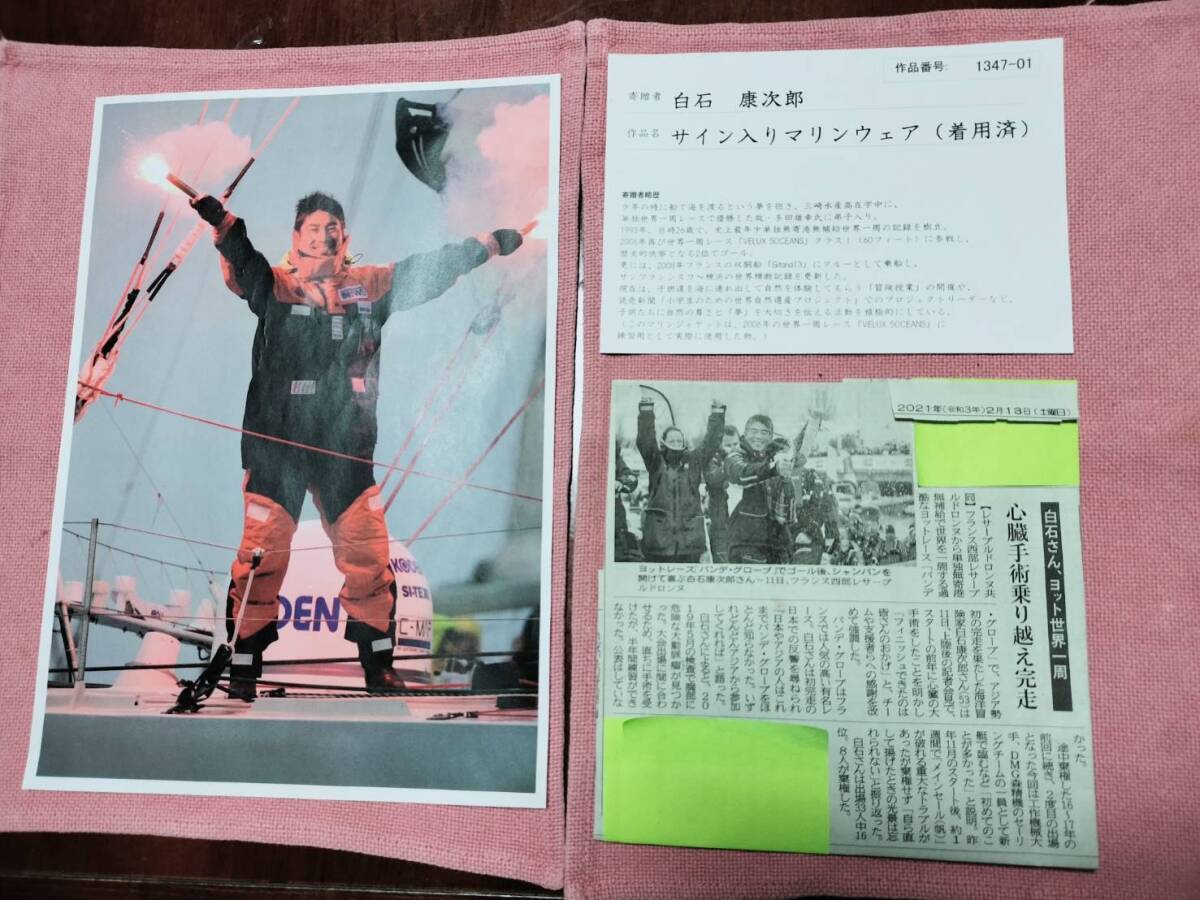 KODEN
SI-TEX
DEN
作品番号: 1347-01
寄贈者 白石 康次郎
作品名 サイン入りマリンウェア(着用済)
寄贈者略歴
少年の時に船で海を渡るという夢を抱き、三崎水産高在学中に、
単独世界一周レースで優勝した故・多田雄幸氏に弟子入り。
1993年、当時26歳で、史上最年少単独無寄港無補給世界一周の記録を樹立。
2006年再び世界一周レース「VELUX 5OCEANS」クラスⅠ(60フィート)に参戦し、
歴史的快挙となる2位でゴール。
更には、2008年フランスの双胴船「Gitana13」にクルーとして乗船し、
サンフランシスコ~横浜の世界横断記録を更新した。
現在は、子供達を海に連れ出して自然を体験してもらう「冒険授業」の開催や、
読売新聞「小学生のための世界自然遺産プロジェクト」でのプロジェクトリーダーなど、
子供たちに自然の尊さと「夢」を大切さを伝える活動を積極的にしている。
(このマリンジャケットは、2006年の世界一周レース「VELUX 5OCEANS」に
練習用として実際に使用した物。)
2021年(令和3年)2月13日(土曜日)
ヨットレース「バンデ・グローブ」でゴール後、シャンパンを
開けて喜ぶ白石康次郎さん=11日、フランス西部レサーブ
ルドロンヌ
白石さん、ヨット世界一周
心臓手術乗り越え完走
【レサーブルドロンヌ共
同】フランス西部レサーブ
ルドロンヌから単独無寄港
無補給で世界を一周する過
酷なヨットレース「バンデ
・グローブ」で、アジア勢
初の完走を果たした海洋冒
険家白石康次郎さん(53)は
11日、上陸後の記者会見で、
スタートの前年に心臓の大
手術をしたことを明かし
「フィニッシュできたのは
皆さんのおかげ」と、チー
ムや支援者らへの感謝を改
めて強調した。
バンデ・グローブはフラ
ンスでは人気の高い有名レ
ース。白石さんは初完走の
日本での反響を尋ねられ
「日本やアジアの人はこれ
までバンデ・グローブをほ
とんど知らなかった。いず
れどんどんアジアから参加
してくれれば」と語った。
白石さんによると、20
19年5月の検査で胸部に
危険な大動脈瘤が見つか
った。大会出場に間に合わ
せるため、直ちに手術を受
けたが、半年間練習ができ
なかった。公表はしていな
かった。
途中棄権した16~17年の
前回に続き、2度目の出場
となった今回は工作機械大
手、DMG森精機のセーリ
ングチームの一員として新
艇で臨むなど「初めてのこ
とが多かった」と説明。昨
年11月のスタート後、約1
週間で「メインセール(帆)
が破れる重大なトラブルが
あったが棄権せず「自ら直
して揚げたときの光景は忘
れられない」と振り返った。
白石さんは出場33人中16
位。8人が棄権した。